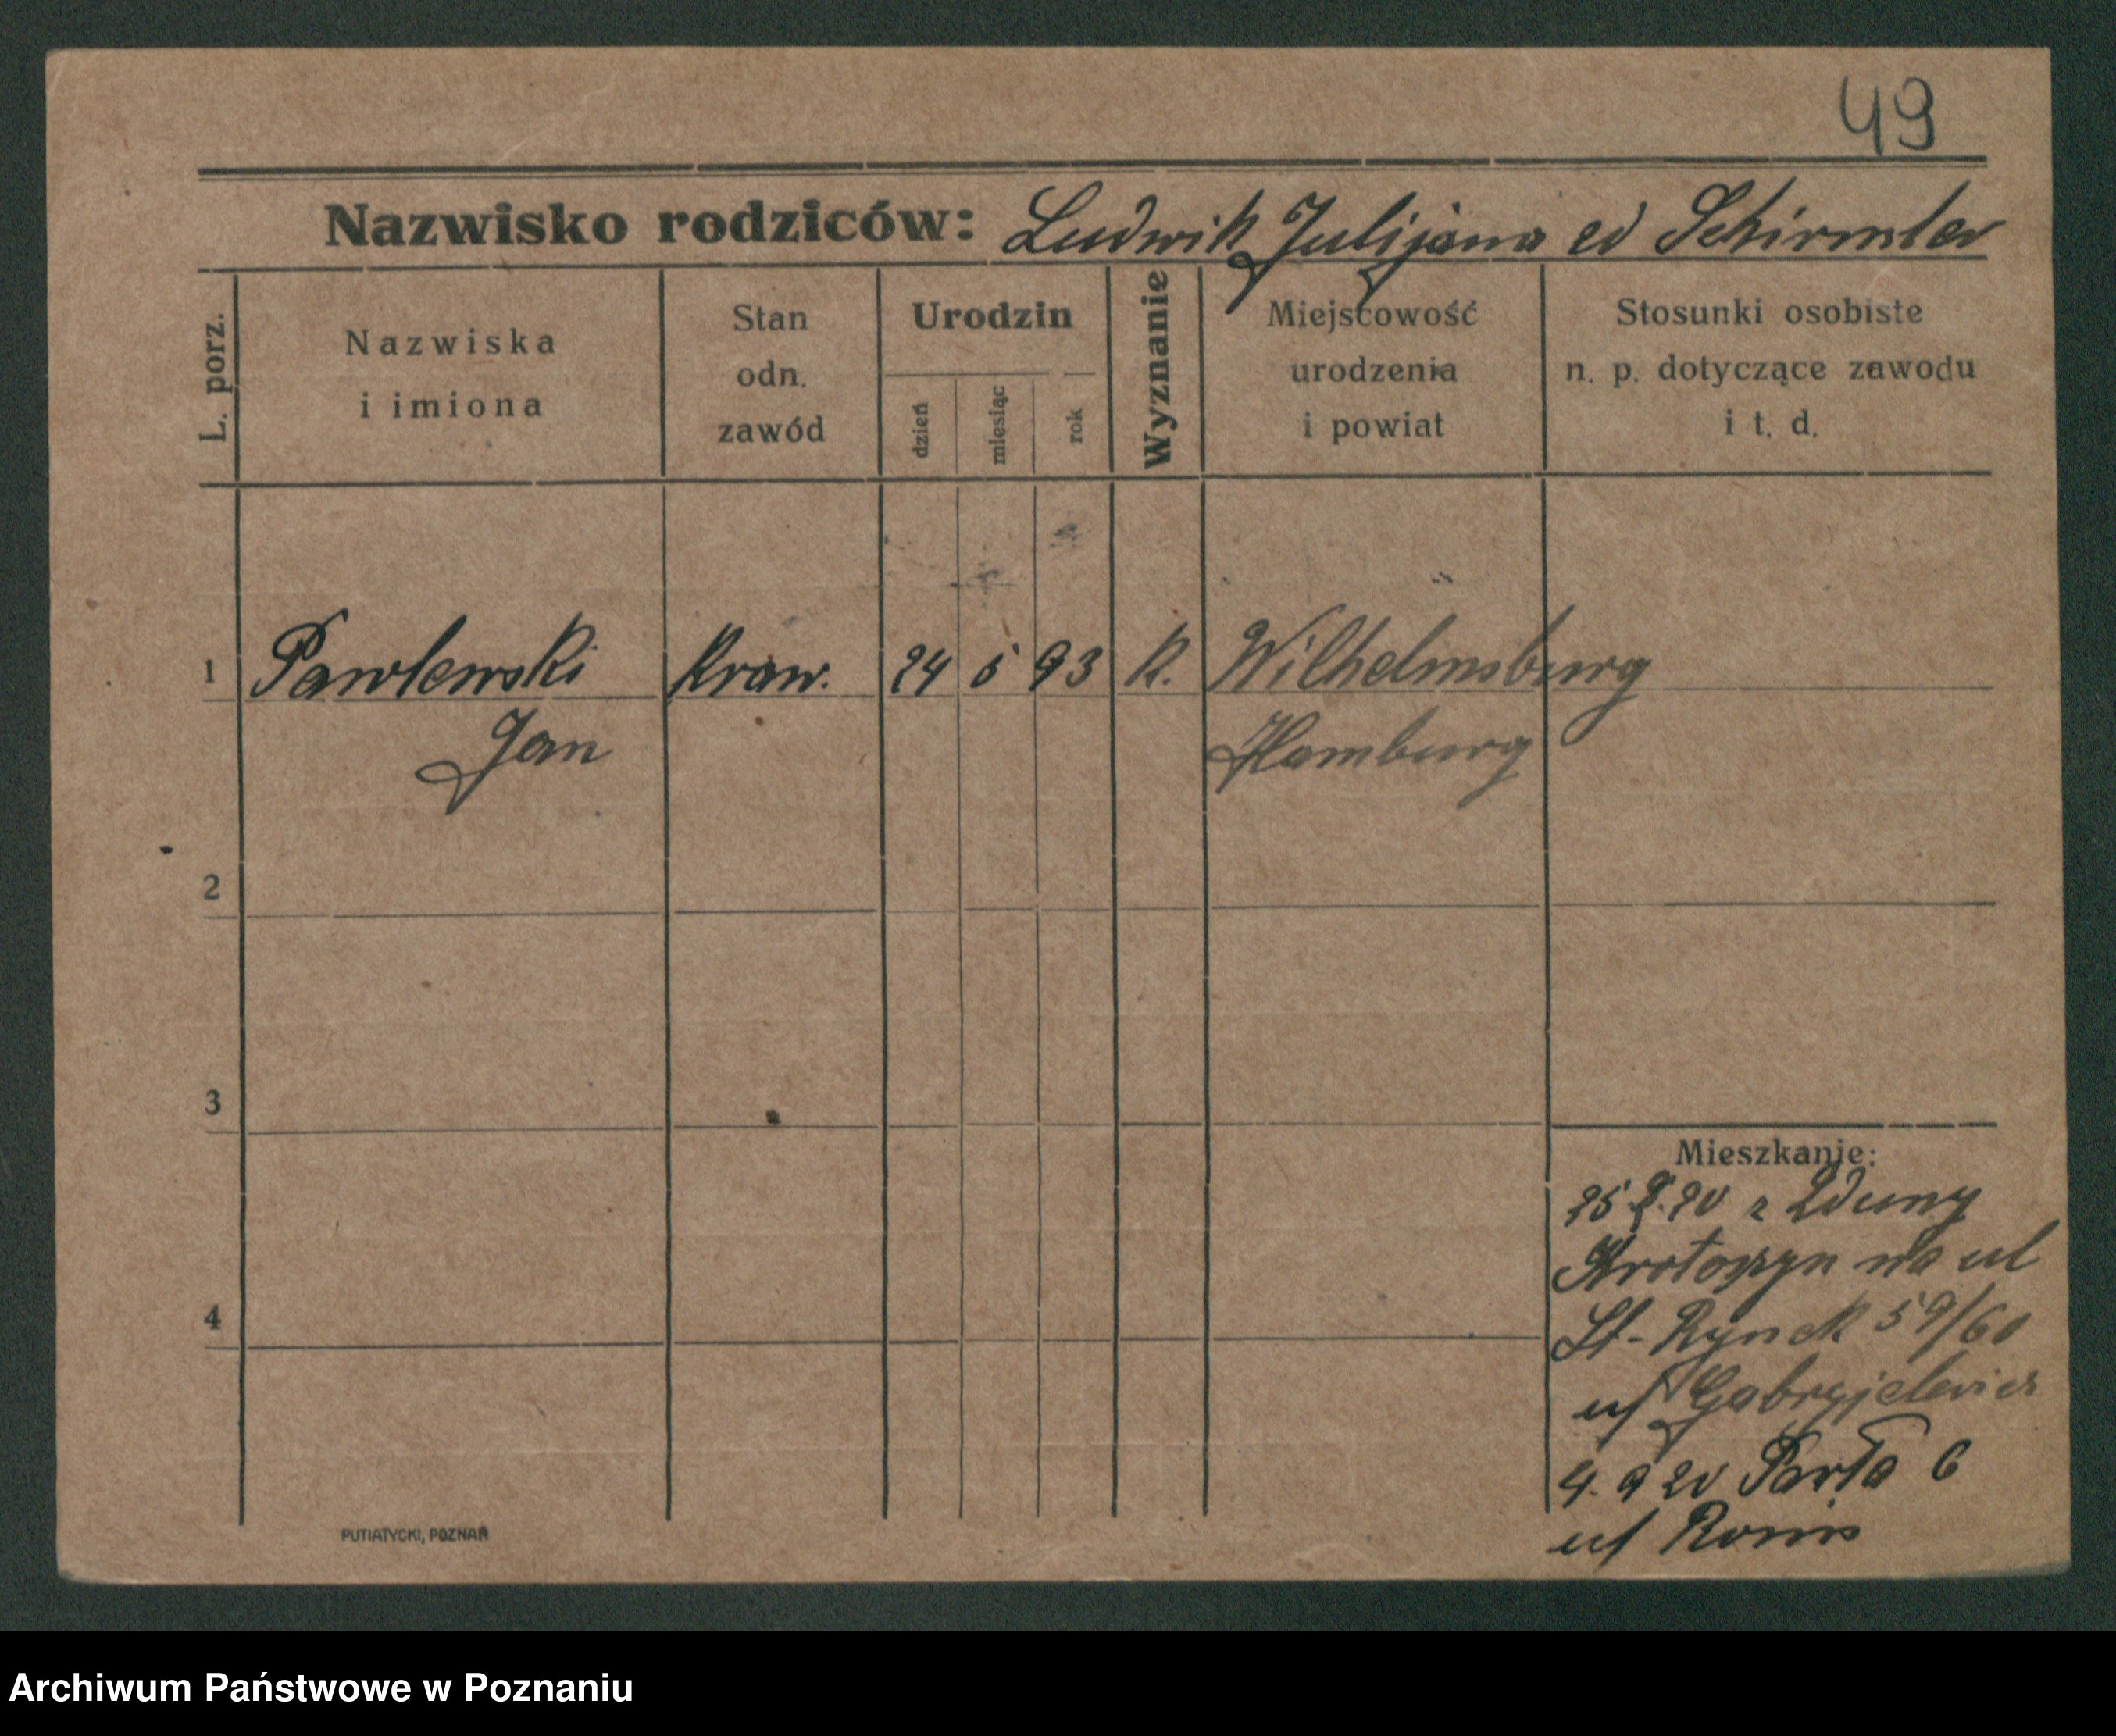 49
Nazwisko rodziców: Ludwik Julijana ed Schirmler
L. porz.
Nazwiska
i imiona
Stan
odn.
zawód
Urodzin
dzień
miesiąc
rok
Wyznanie
Miejscowość
urodzenia
i powiat
Stosunki osobiste
n. p. dotyczące zawodu
i t. d.
1 Pawlewski Kraw. 24 5 93 K. Wilhelmsburg
Jan Hamburg
2
3
4
Mieszkanie:
z Zduny
Krotoszyn na ul
St- Rynek 59/60
4. 9 20 6
PUTIATYCKI, POZNAŃ
Archiwum Państwowe w Poznaniu